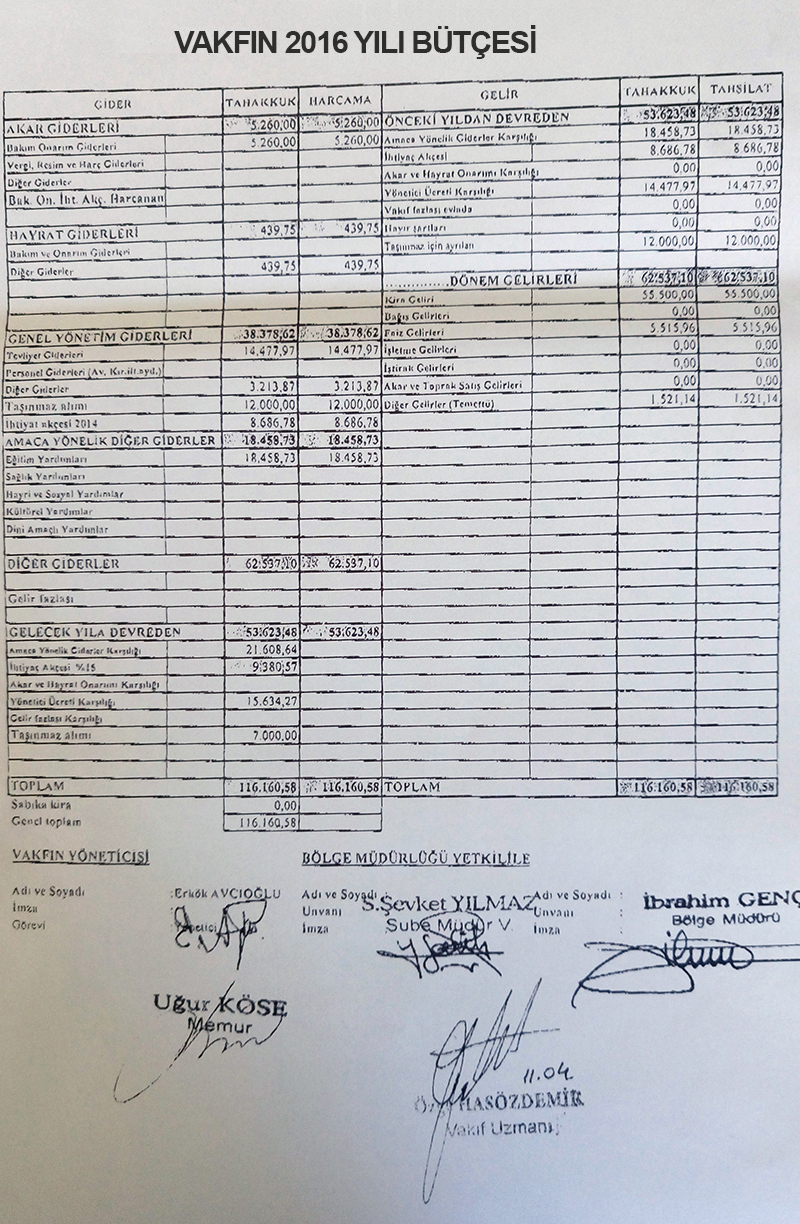 VAKFIN 2016 YILI BÜTÇESİ
GİDER TAHAKKUK HARCAMA GELİR TAHAKKUK TAHSİLAT
AKAR GİDERLERİ 5.260,00 5.260,00 ÖNCEKİ YILDAN DEVREDEN 53.623,48 53.623,48
Bakım Onarım Giderleri 5.260,00 5.260,00 Amaca Yönelik Giderler Karşılığı 18.458,73 18.458,73
Vergi, Resim ve Harç Giderleri İhtiyaç Akçesi 8.686,78 8.686,78
Diğer Giderler Akar ve Hayrat Onarımı Karşılığı 0,00 0,00
Bak. On. İht. Akç. Harcanan Yönetici Ücreti Karşılığı 14.477,97 14.477,97
Vakıf fazlası evinda 0,00 0,00
HAYRAT GİDERLERİ 439,75 439,75 Hayır şartları 0,00 0,00
Bakım ve Onarım Giderleri Taşınmaz için ayrılan 12.000,00 12.000,00
Diğer Giderler 439,75 439,75
..............DÖNEM GELİRLERİ 62.537,10 62.537,10
Kira Geliri 55.500,00 55.500,00
Bağış Gelirleri 0,00 0,00
GENEL YÖNETİM GİDERLERİ 38.378,62 38.378,62 Faiz Gelirleri 5.515,96 5.515,96
Tevliyet Giderleri 14.477,97 14.477,97 İşletme Gelirleri 0,00 0,00
Personel Giderleri (Av. Kır.ilt.ayd.) İştirak Gelirleri 0,00 0,00
Diğer Giderler 3.213,87 3.213,87 Akar ve Toprak Satış Gelirleri 0,00 0,00
Taşınmaz alımı 12.000,00 12.000,00 Diğer Gelirler (Temettü) 1.521,14 1.521,14
İhtiyat akçesi 2014 8.686,78 8.686,78
AMACA YÖNELİK DİĞER GİDERLER 18.458,73 18.458,73
Eğitim Yardımları 18.458,73 18.458,73
Sağlık Yardımları
Hayri ve Sosyal Yardımlar
Kültürel Yardımlar
Dini Amaçlı Yardımlar
DİĞER GİDERLER 62.537,10 62.537,10
Gelir fazlası
GELECEK YILA DEVREDEN 53.623,48 53.623,48
Amaca Yönelik Giderler Karşılığı 21.608,64
İhtiyaç Akçesi %15 9.380,57
Akar ve Hayrat Onarımı Karşılığı
Yönetici Ücreti Karşılığı 15.634,27
Gelir fazlası Karşılığı
Taşınmaz alımı 7.000,00
TOPLAM 116.160,58 116.160,58 TOPLAM 116.160,58 116.160,58
Sabıka kira 0,00
Genel toplam 116.160,58
VAKFIN YÖNETİCİSİ BÖLGE MÜDÜRLÜĞÜ YETKİLİLE
Adı ve Soyadı :Erkök AVCIOĞLU Adı ve Soyadı : S.Şevket YILMAZ Adı ve Soyadı : İbrahim GENÇ
İmza Unvanı Şube Müdür V. Unvanı : Bölge Müdürü
Görevi Yönetici İmza İmza :
Uğur KÖSE
Memur
11.04.
HASÖZDEMİR
Vakıf Uzmanı